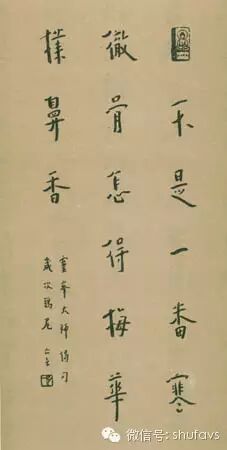 不是一番寒
徹骨怎得梅華
撲鼻香
靈峯大師偈句
歲次鶉尾
微信号: shufavs